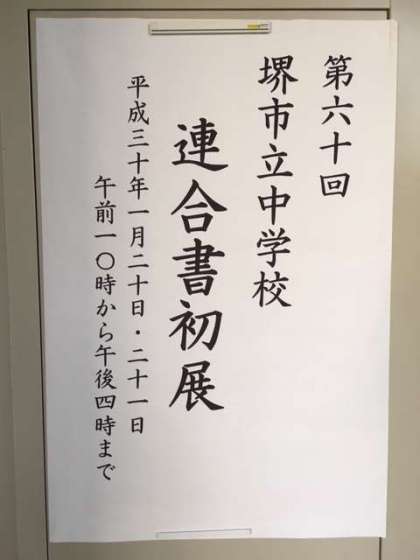 第六十回
堺市立中学校
連合書初展
平成三十年一月二十日・二十一日
午前一〇時から午後四時まで